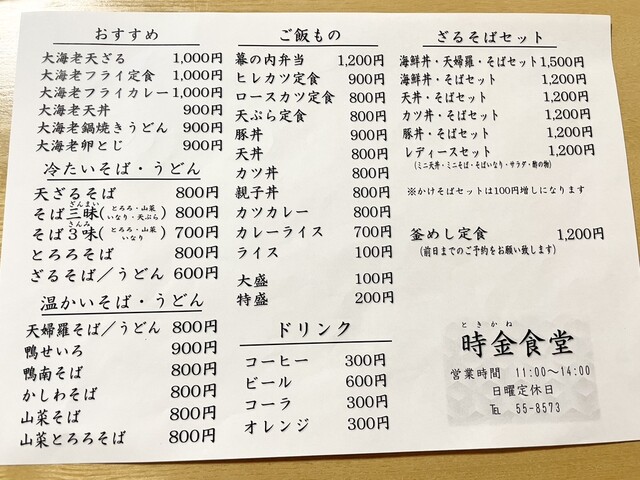 おすすめ
大海老天ざる 1,000円
大海老フライ定食 1,000円
大海老フライカレー 1,000円
大海老天丼 900円
大海老鍋焼きうどん 900円
大海老卵とじ 900円
冷たいそば・うどん
天ざるそば 800円
そば三昧(とろろ・山菜いなり・天ぷら) 800円
ざんまい
そば3味(とろろ・山菜いなり) 700円
さんみ
とろろそば 800円
ざるそば/うどん 600円
温かいそば・うどん
天婦羅そば/うどん 800円
鴨せいろ 900円
鴨南そば 800円
かしわそば 800円
山菜そば 800円
山菜とろろそば 800円
ご飯もの
幕の内弁当 1,200円
ヒレカツ定食 900円
ロースカツ定食 800円
天ぷら定食 800円
豚丼 900円
天丼 800円
カツ丼 800円
親子丼 800円
カツカレー 800円
カレーライス 700円
ライス 100円
大盛 100円
特盛 200円
ドリンク
コーヒー 300円
ビール 600円
コーラ 300円
オレンジ 300円
ざるそばセット
海鮮丼・天婦羅・そばセット 1,500円
海鮮丼・そばセット 1,200円
天丼・そばセット 1,200円
カツ丼・そばセット 1,200円
豚丼・そばセット 1,200円
レディースセット 1,200円
(ミニ天丼・ミニそば・そばいなり・サラダ・酢の物)
※かけそばセットは100円増しになります
釜めし定食 1,200円
(前日までのご予約をお願い致します)
ときかね
時金食堂
営業時間 11:00~14:00
日曜定休日
℡ 55-8573